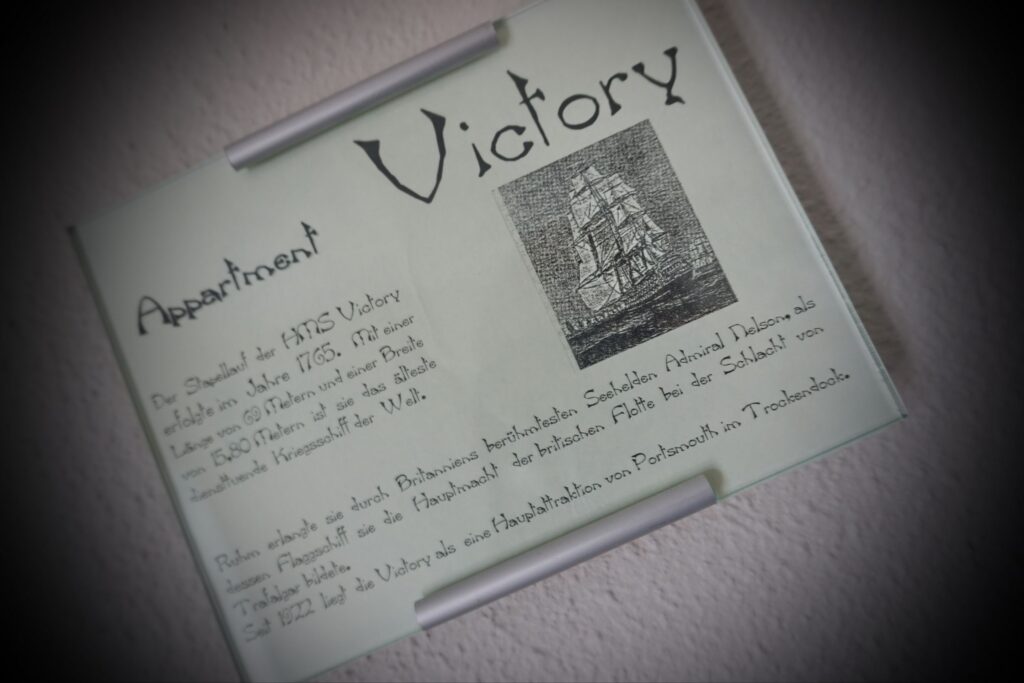 Victory
Appartment
Der Stapellauf der HMS Victory
erfolgte im Jahre 1765. Mit einer
Länge von 69 Metern und einer Breite
von 15,80 Metern ist sie das älteste
diensttuende Kriegsschiff der Welt.
Ruhm erlangte sie durch Britanniens berühmtesten Seehelden Admiral Nelson, als
dessen Flaggschiff sie die Hauptmacht der britischen Flotte bei der Schlacht von
Trafalgar bildete.
Seit 1922 liegt die Victory als eine Hauptattraktion von Portsmouth im Trockendock.